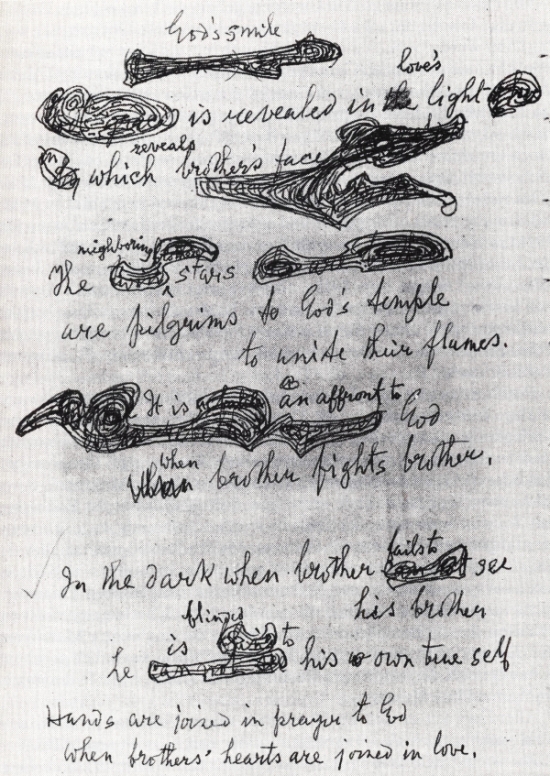 God's smile
is revealed in the love's light
which reveals brother's face
The neighboring stars
are pilgrims to God's temple
to unite their flames.
It is an affront to God
when brother fights brother.
In the dark when brother fails to see
his brother
he is blinded to his own true self
Hands are joined in prayer to God
when brothers' hearts are joined in love.